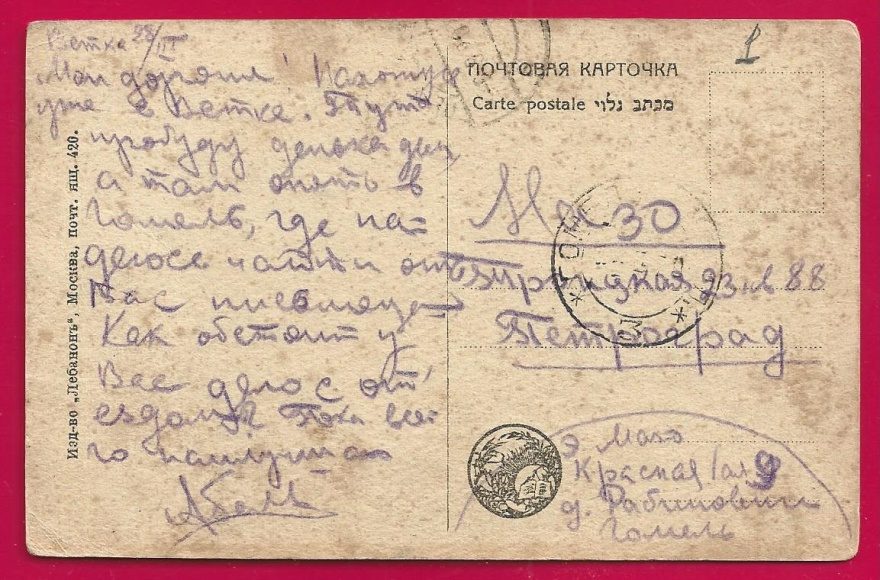 Ветка 28/III
Мои дорогие! Нахожусь
уже в Ветке. Тут
пробуду денька два,
а там опять в
Гомель, где на-
деюсь найти от
Вас письмецо
Как обстоит у
Вас дело с отъ-
ездом? Пока все-
го наилучшего
Абель
Изд-во „Лебанонъ“, Москва, почт. ящ. 420.
ПОЧТОВАЯ КАРТОЧКА
Carte postale מכתב גלוי
1
Мазо
23 кв 88
Петроград
ГОМЕЛЬ
Э. Мазо
Красная 9
д. Рабинович
Гомель